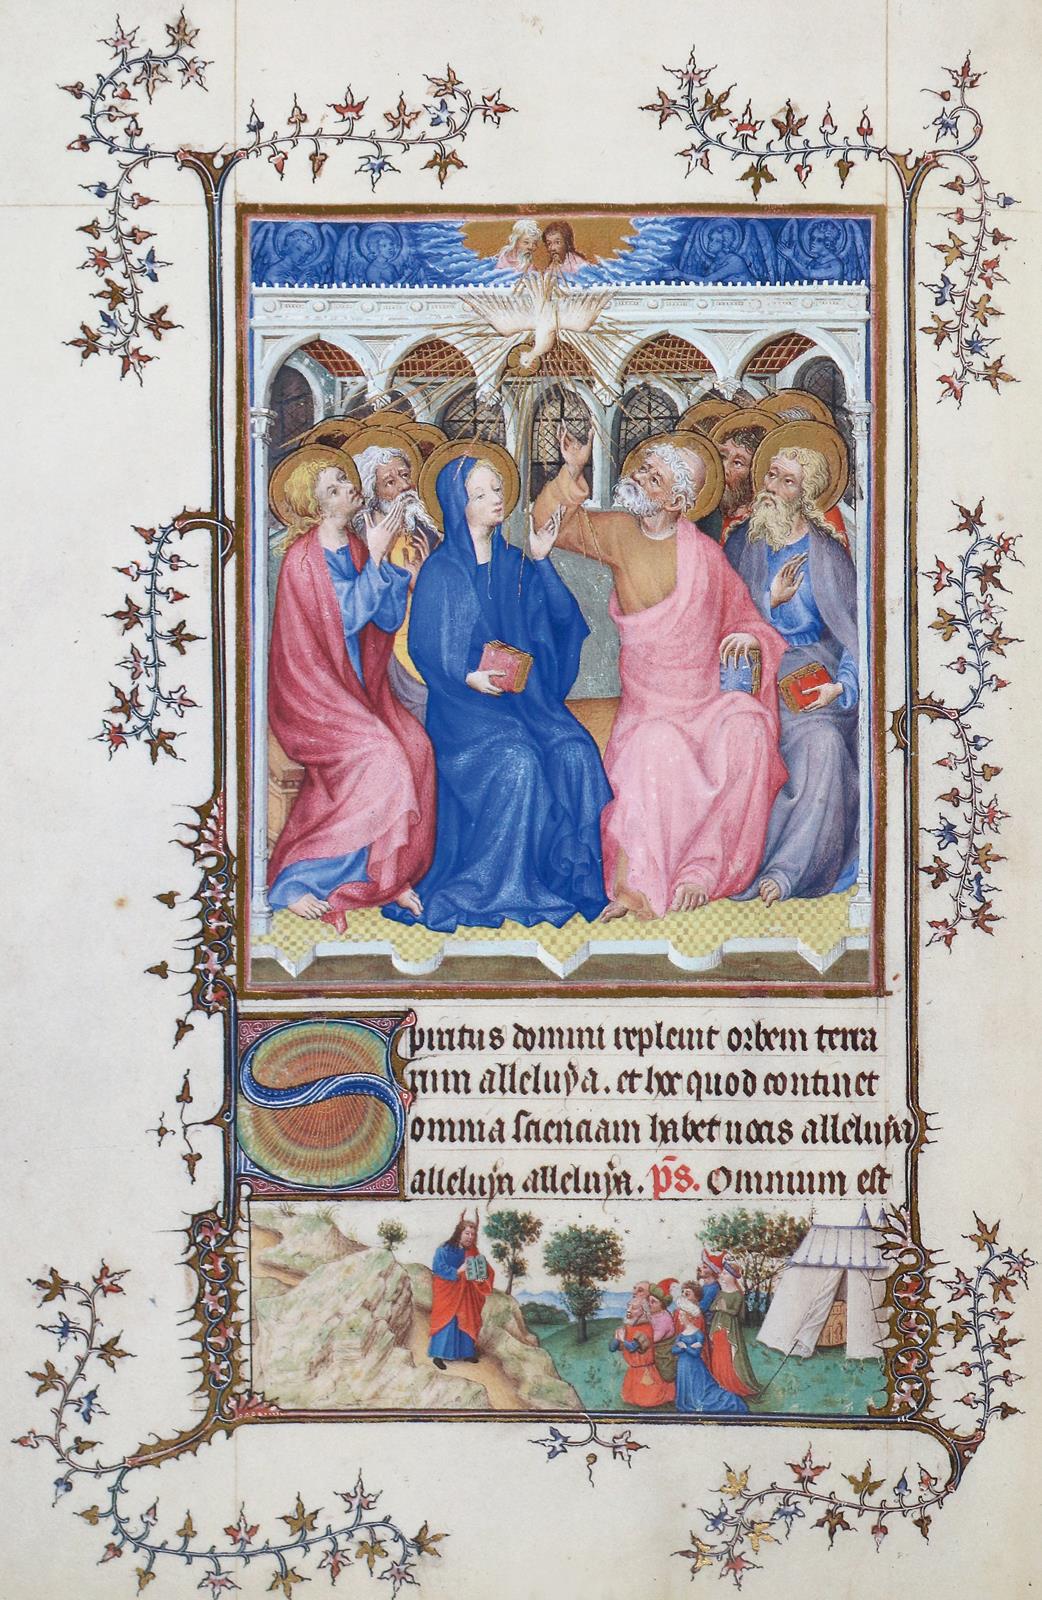 Spiritus domini repleuit orbem terra
rum alleluya. et hoc quod continet
omnia scienciam habet uocis alleluya
alleluya alleluya. p̄s. Omnium est